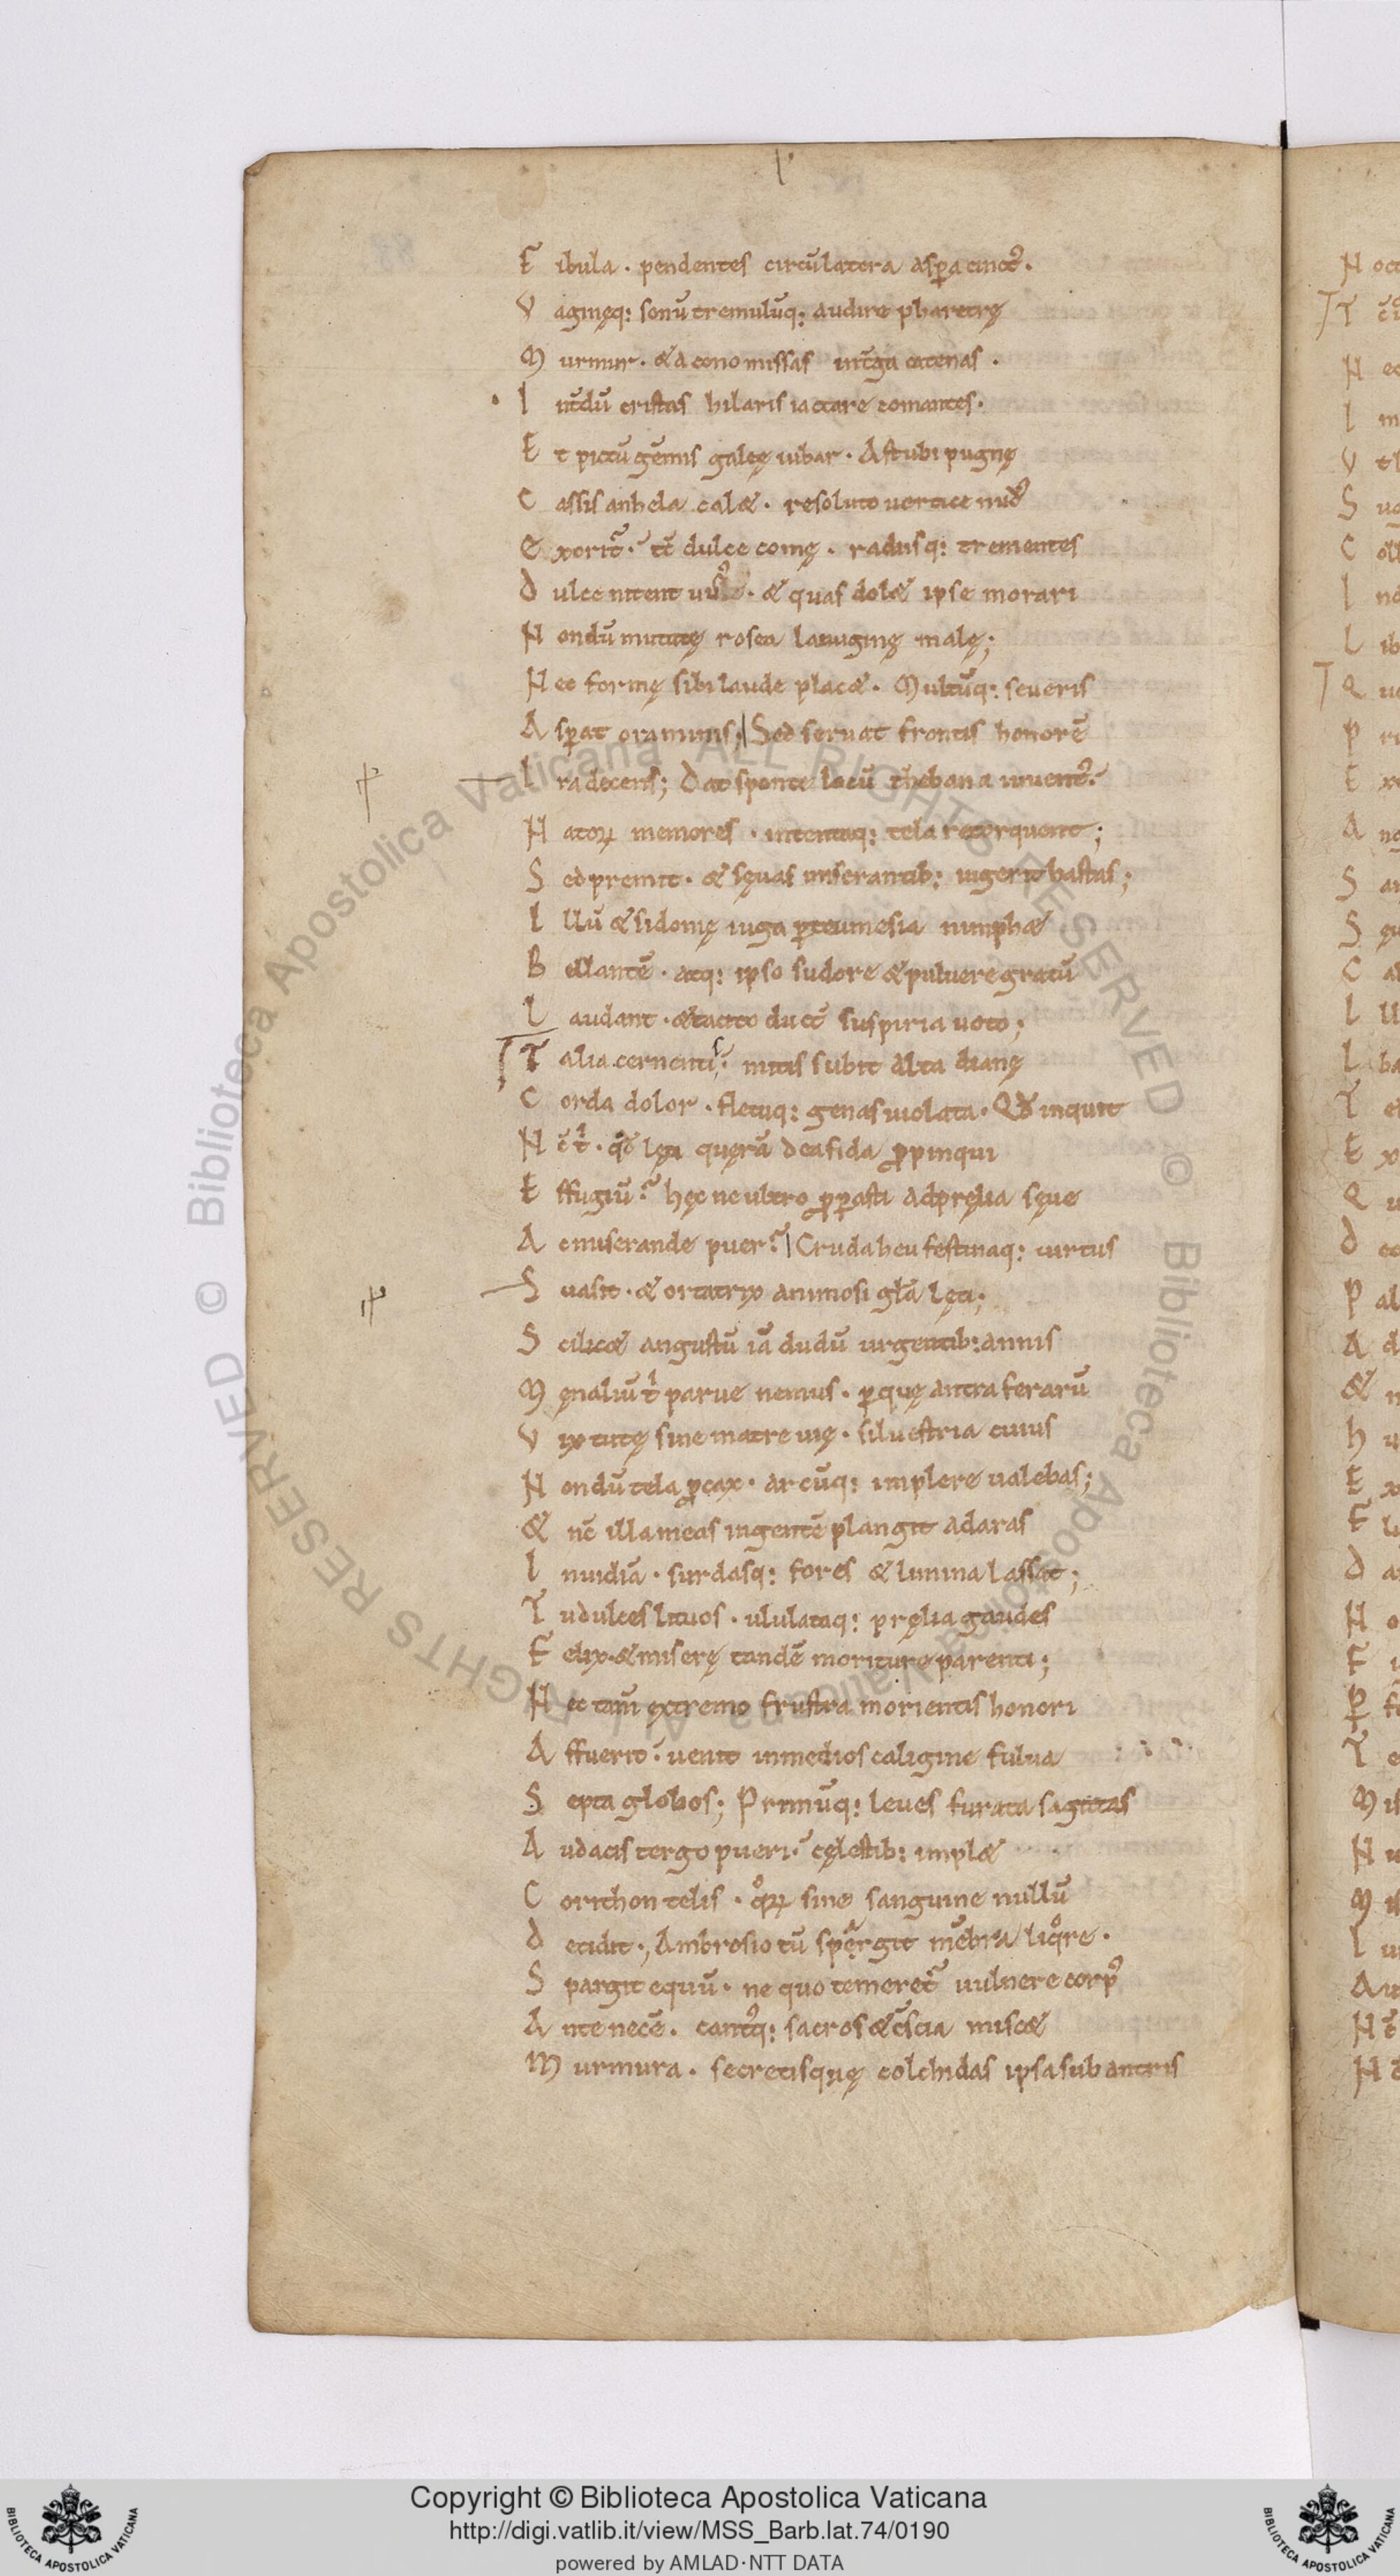 F ibula. pendentes circūlatera asꝑa cinctꝰ.
V aginęq: sonū tremulūq: audire pharetrę
M urmur. & a cono missas int̄ga catenas.
I nt̄dū cristas hilaris iactare comantes.
E t pictū gēmis galeę iubar. Ast ubi pugnę
C assis anhela cal&. resoluto uertice nudꝰ
E xorit̄. tc̄ dulce comę. radiisq: trementes
D ulce nitent uisꝰ. & quas dol& ipse morari
N ondū mutatę rosea lanugine malę;
N ec formę sibi laude plac&. Multūq: seueris
A sꝑat ora minis; Sed seruat frontis honorē
I ra decens; Dat sponte locū thebana iuuentꝰ.
N atoꝝ memores. intentaq: tela retorquent;
S ed premit. & sęuas miserantib: ingerit hastas;
I llū & sidonię iuga ꝑteumesia nimph&
B ellantē. atq: ipso sudore & puluere gratū
L audant. & tacito duct̄ suspiria uoto;
T alia cernenti mitis subit alta dianę
C orda dolor. fletuq: genas uiolata. Qđ inquit
N c̄ t̄. qđ lęti quęrā dea fida ꝓpinqui
E ffugiū? hęc ne ultro ꝓꝑasti ad pręlia sęue
A c miserande puer? Cruda heu festinaq: uirtus
S uasit. & ortatrix animosi gl̄a lęti;
S cilic& angustū iā dudū urgentib: annis
M ęnaliū t̄ parue nemus. ꝑquę antra ferarū
V ix tutę sine matre uię. siluestria cuius
N ondū tela ꝓcax. arcūq: implere ualebas;
& nc̄ illa meas ingentē plangit ad aras
I nuidiā. surdasq: fores & limina lassat;
T u dulces lituos. ululataq: pręlia gaudes
F elix. & miserę tandē moriture parenti;
N ec tam̄ extremo frustra morientis honori
A ffuerit. uenit in medios caligine fulua
S epta globos; Primūq: leues furata sagittas
A udacis tergo pueri. cęlestib: impl&
C orithon telis. qͦꝝ sine sanguine nullū
D ecidit; Ambrosio tū spęrgit mēbra liqͦre.
S pargit equū. ne quo temeret̄ uulnere corpꝰ
A nte necē. cantꝰq: sacros & c̄scia misc&
M urmura. secretisquę colchidas ipsa sub antris
Copyright © Biblioteca Apostolica Vaticana
http://digi.vatlib.it/view/MSS_Barb.lat.74/0190
powered by AMLAD·NTT DATA
BIBLIOTECA APOSTOLICA VATICANA
BIBLIOTECA APOSTOLICA VATICANA